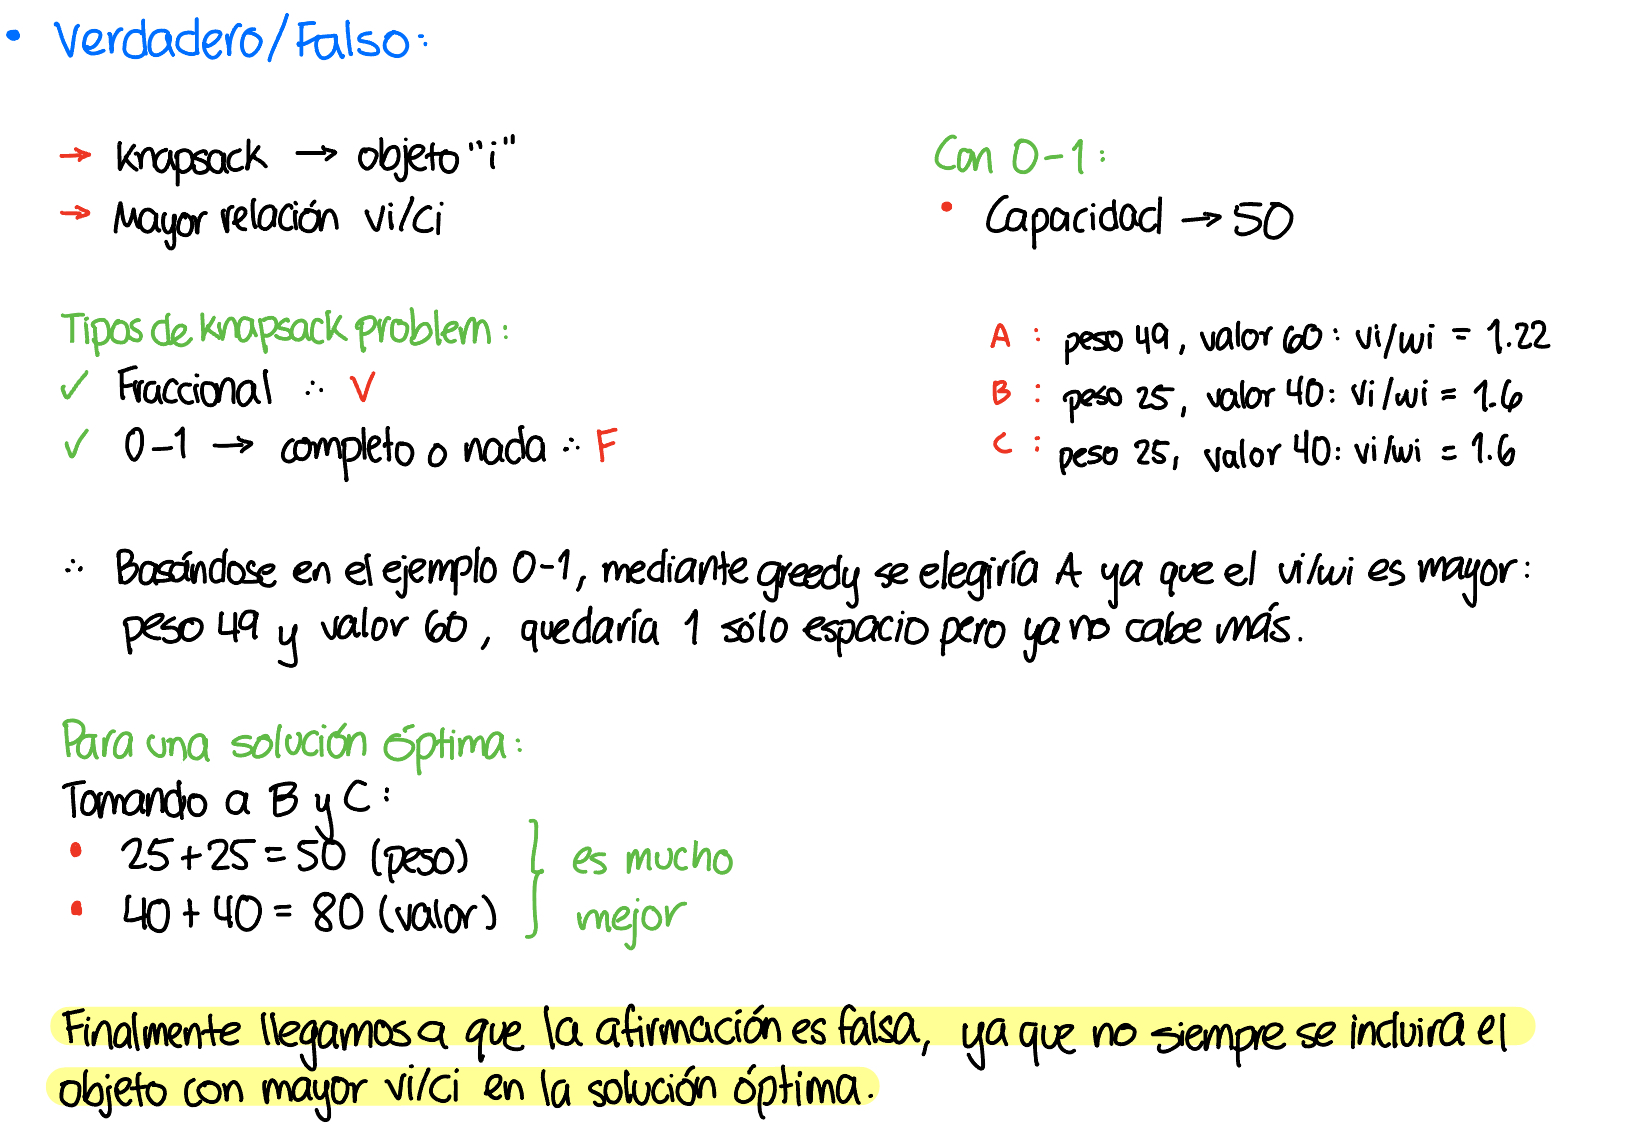 • Verdadero/Falso:
→ Knapsack → objeto "i"
→ Mayor relación vi/ci
Tipos de knapsack problem:
✓ Fraccional ∴ V
✓ 0-1 → completo o nada ∴ F
Con 0-1:
• Capacidad → 50
A : peso 49, valor 60: vi/wi = 1.22
B : peso 25, valor 40: vi/wi = 1.6
C : peso 25, valor 40: vi/wi = 1.6
∴ Basándose en el ejemplo 0-1, mediante greedy se elegiría A ya que el vi/wi es mayor:
peso 49 y valor 60, quedaría 1 sólo espacio pero ya no cabe más.
Para una solución óptima:
Tomando a B y C:
• 25+25=50 (peso)
• 40+40=80 (valor)
es mucho
mejor
Finalmente llegamos a que la afirmación es falsa, ya que no siempre se incluira el
objeto con mayor vi/ci en la solución óptima.